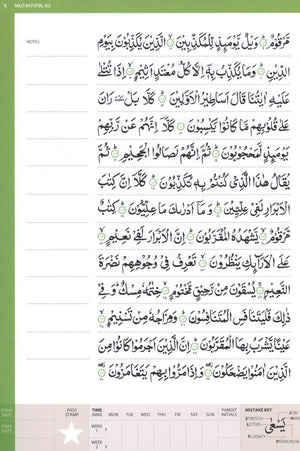 9 MUTAFFIFIN, 83
NOTES
مَّرْقُومٌ ۝ وَيْلٌ يَوْمَئِذٍ لِّلْمُكَذِّبِينَ ۝ الَّذِينَ يُكَذِّبُونَ بِيَوْمِ
الدِّينِ ۝ وَمَا يُكَذِّبُ بِهِ إِلَّا كُلُّ مُعْتَدٍ أَثِيمٍ ۝ إِذَا تُتْلَىٰ
عَلَيْهِ آيَاتُنَا قَالَ أَسَاطِيرُ الْأَوَّلِينَ ۝ كَلَّا بَلْ سكتة رَانَ
عَلَىٰ قُلُوبِهِم مَّا كَانُوا يَكْسِبُونَ ۝ كَلَّا إِنَّهُمْ عَن رَّبِّهِمْ
يَوْمَئِذٍ لَّمَحْجُوبُونَ ۝ ثُمَّ إِنَّهُمْ لَصَالُوا الْجَحِيمِ ۝ ثُمَّ
يُقَالُ هَٰذَا الَّذِي كُنتُم بِهِ تُكَذِّبُونَ ۝ كَلَّا إِنَّ كِتَابَ
الْأَبْرَارِ لَفِي عِلِّيِّينَ ۝ وَمَا أَدْرَاكَ مَا عِلِّيُّونَ ۝ كِتَابٌ
مَّرْقُومٌ ۝ يَشْهَدُهُ الْمُقَرَّبُونَ ۝ إِنَّ الْأَبْرَارَ لَفِي نَعِيمٍ ۝
عَلَى الْأَرَائِكِ يَنظُرُونَ ۝ تَعْرِفُ فِي وُجُوهِهِمْ نَضْرَةَ
النَّعِيمِ ۝ يُسْقَوْنَ مِن رَّحِيقٍ مَّخْتُومٍ ۝ خِتَامُهُ مِسْكٌ وَفِي
ذَٰلِكَ فَلْيَتَنَافَسِ الْمُتَنَافِسُونَ ۝ وَمِزَاجُهُ مِن تَسْنِيمٍ ۝
عَيْنًا يَشْرَبُ بِهَا الْمُقَرَّبُونَ ۝ إِنَّ الَّذِينَ أَجْرَمُوا كَانُوا مِنَ
الَّذِينَ آمَنُوا يَضْحَكُونَ ۝ وَإِذَا مَرُّوا بِهِمْ يَتَغَامَزُونَ ۝
START DATE PASS STAMP TIME (MIN) MON TUE WED THU FRI SAT SUN PARENT INITIALS MISTAKE KEY
PASS DATE WEEK 1
WEEK 2
STRETCH
LETTER
FLUENCY
يَسْعَىٰ
JOIN
PRONUNCIATION